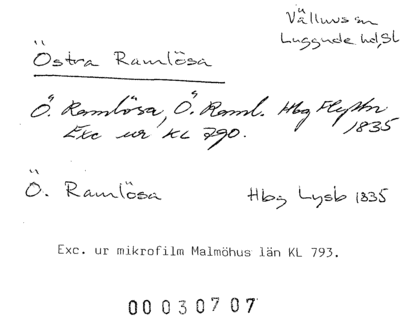 Välluvs sn
Luggude hd, Sk
Östra Ramlösa
Ö. Ramlösa, Ö. Raml. Hbg Flyttn. 1835
Exc ur KL 790.
Ö. Ramlösa Hbg Lysb 1835
Exc. ur mikrofilm Malmöhus län KL 793.
00030707